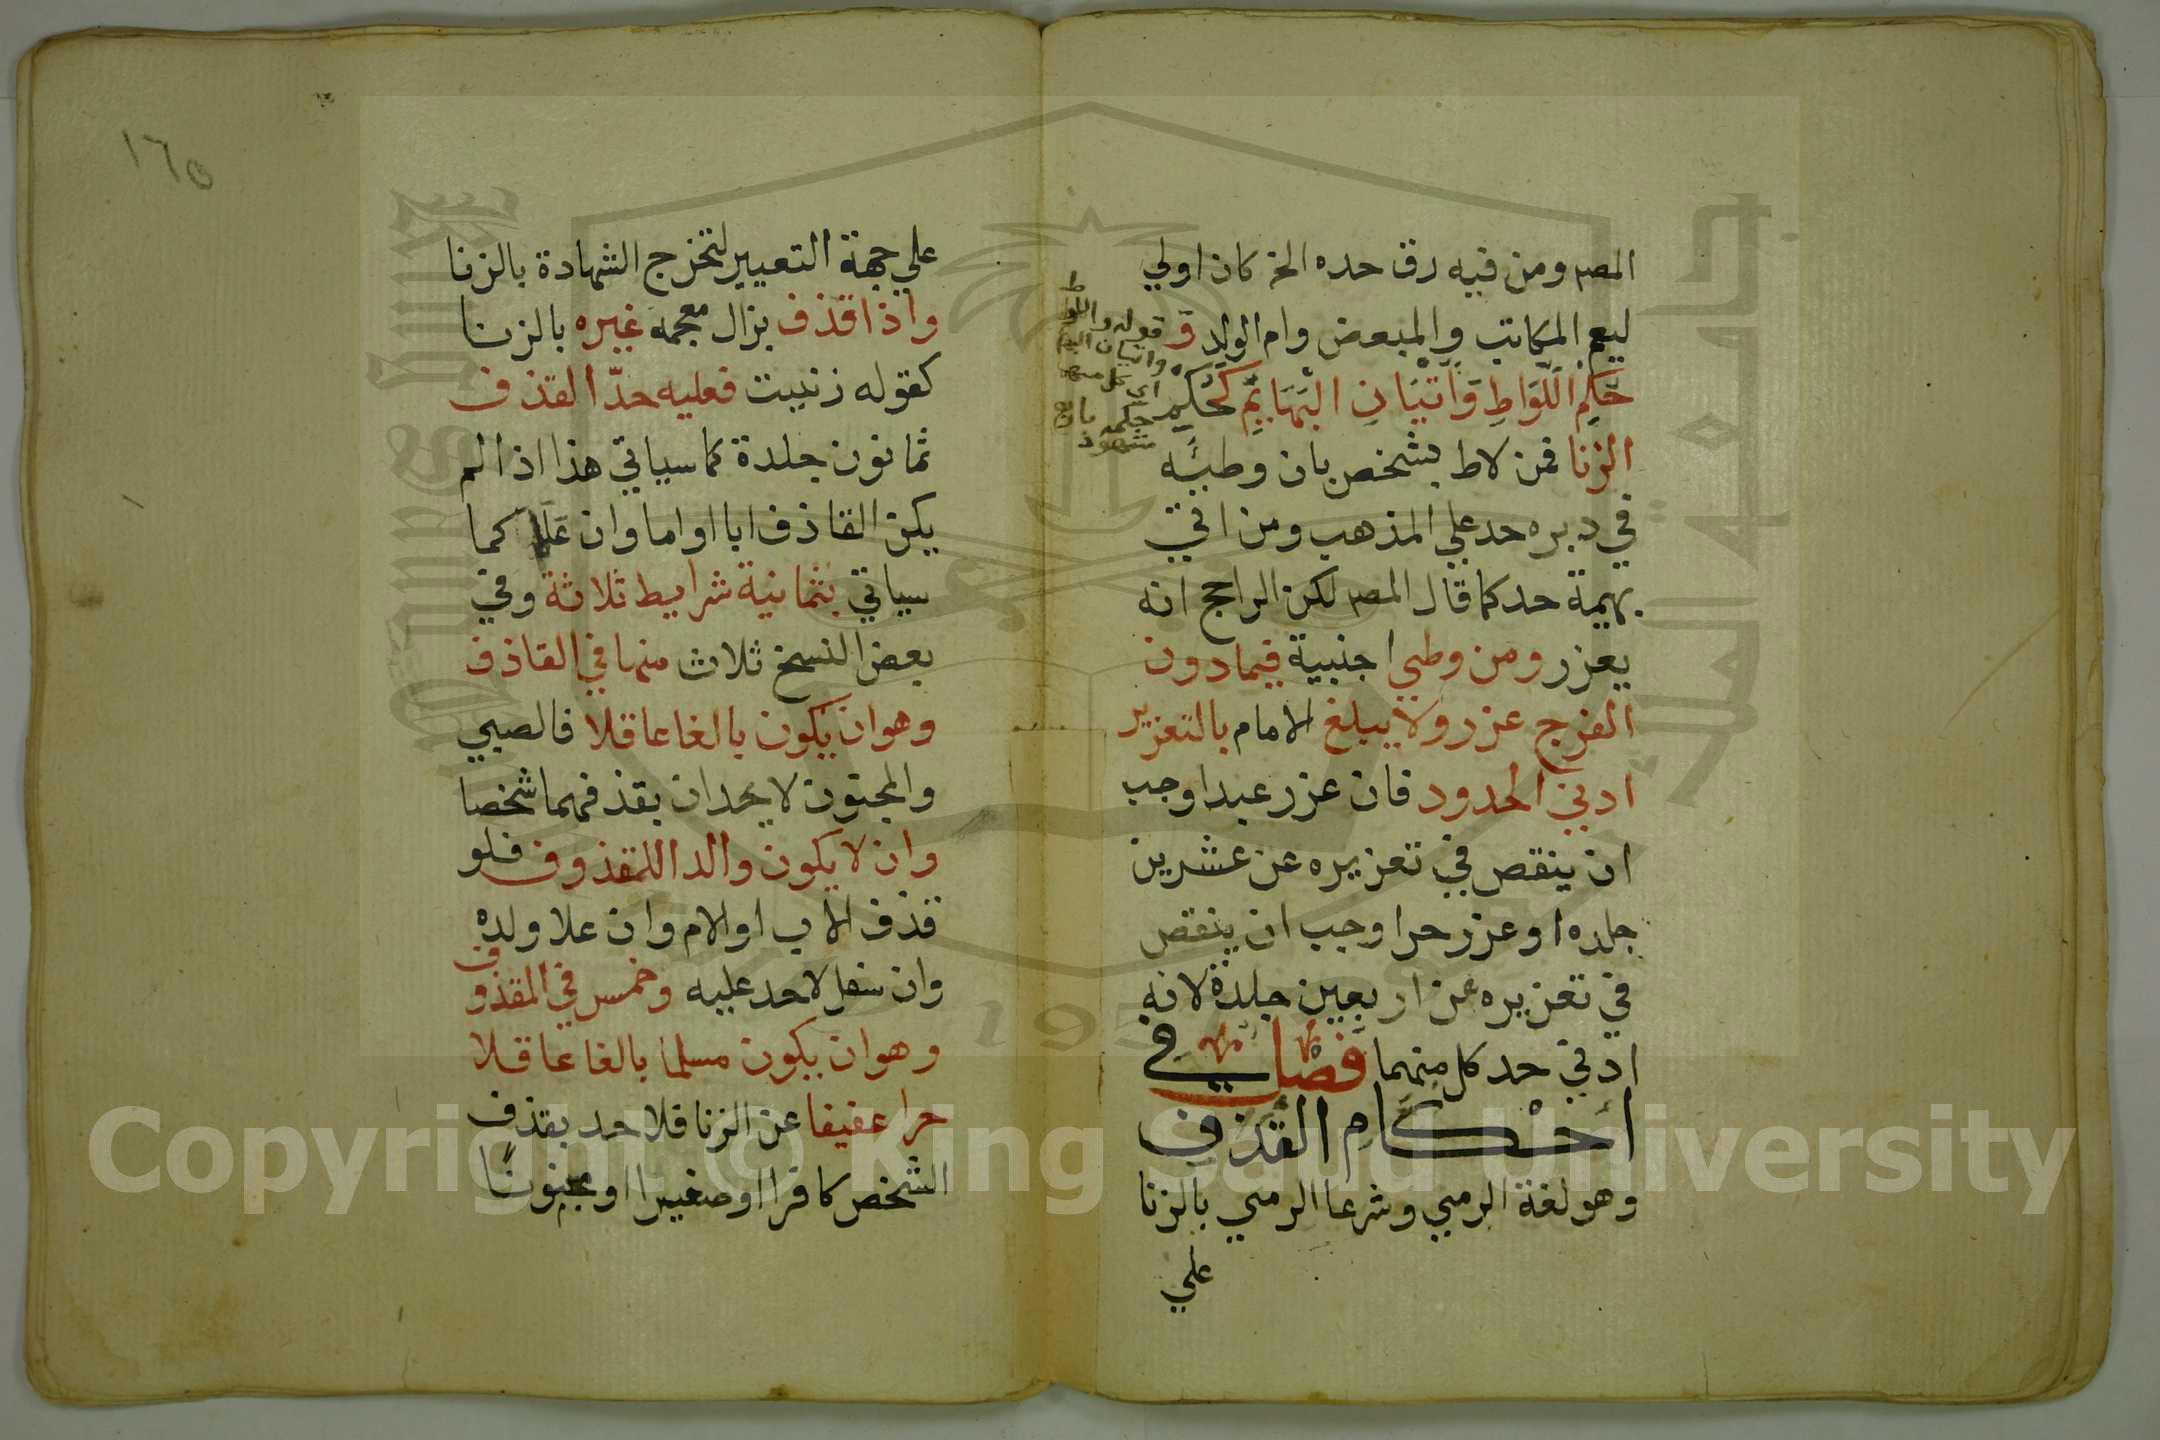 المصر ومن فيه رق حده الخ كان اولي
ليعم المكاتب والمبعض وام الولد و
حَكْمِ اللِّوَاطِ وَاَتْيَانِ البَهَايِمِ كَحُكْمِ
الزنا فمن لاط بشخص بان وطئه
في دبره حد علي المذهب ومن اتي
بهيمة حد كما قال المصر لكن الراجح انه
يعزر ومن وطي اجنبية فيمادون
الفرج عزر ولا يبلغ الامام بالتعزير
ادني الحدود فان عزر عبدا وجب
ان ينقص في تعزيره عن عشرين
جلده او عزر حرا وجب ان ينقص
في تعزيره عن اربعين جلدة لانه
ادني حد كل منهما فصل في
احكام القذف
وهو لغة الرمي وشرعا الرمي بالزنا
علي
قوله واللواط
واتيان البهايم
اي كل منهما
حكمه
١٦٥
علي جهة التعيير لتخرج الشهادة بالزنا
واذا قذف بزال معجمه غيره بالزنا
كقوله زنيت فعليه حدّ القذف
ثمانون جلدة كما سياتي هذا اذا لم
يكن القاذف ابا او اما وان علا كما
سياتي بثمانية شرايط ثلاثة وفي
بعض النسخ ثلاث منها في القاذف
وهو ان يكون بالغا عاقلا فالصبي
والمجنون لا يحدان بقذفهما شخصا
وان لا يكون والدا للمقذوف فلو
قذف الاب او الام وان علا ولده
وان سفل لا حد عليه وخمس في المقذوف
وهو ان يكون مسلما بالغا عاقلا
حرا عفيفا عن الزنا فلا حد بقذف
الشخص كافرا او صغيرا او مجنونًا
Copyright © King Saud University